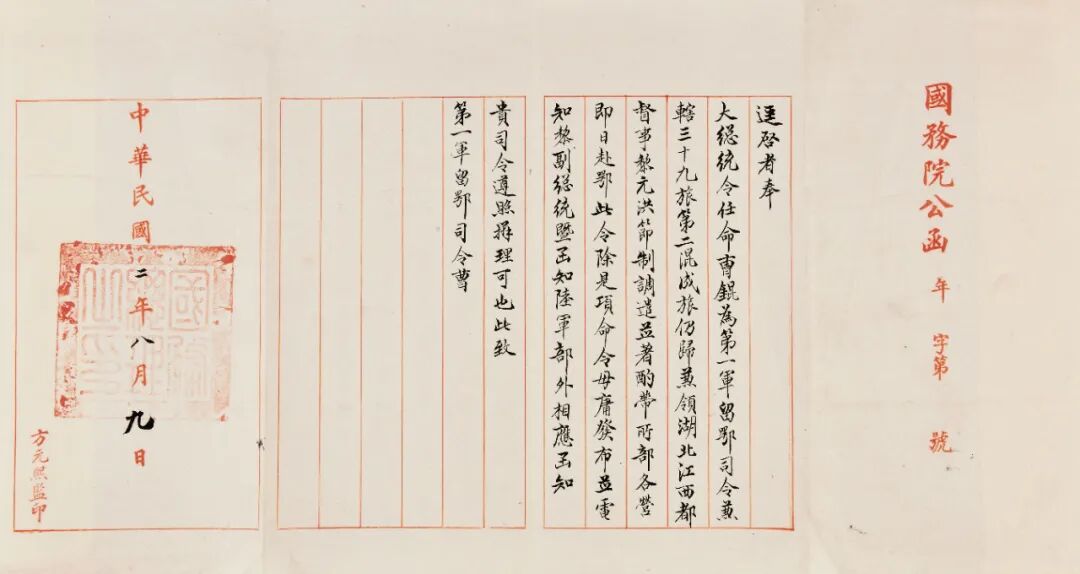 國務院公函 年 字第 號
逕啓者奉
大總統令任命曹錕為第一軍留鄂司令兼
轄三十九旅第二混成旅仍歸兼領湖北江西都
督事黎元洪節制調遣並著酌帶所部各營
即日赴鄂此令除是項命令毋庸發布並電
知黎副總統暨函知陸軍部外相應函知
貴司令遵照辦理可也此致
第一軍留鄂司令曹
中華民國二年八月九日
方元熙監印